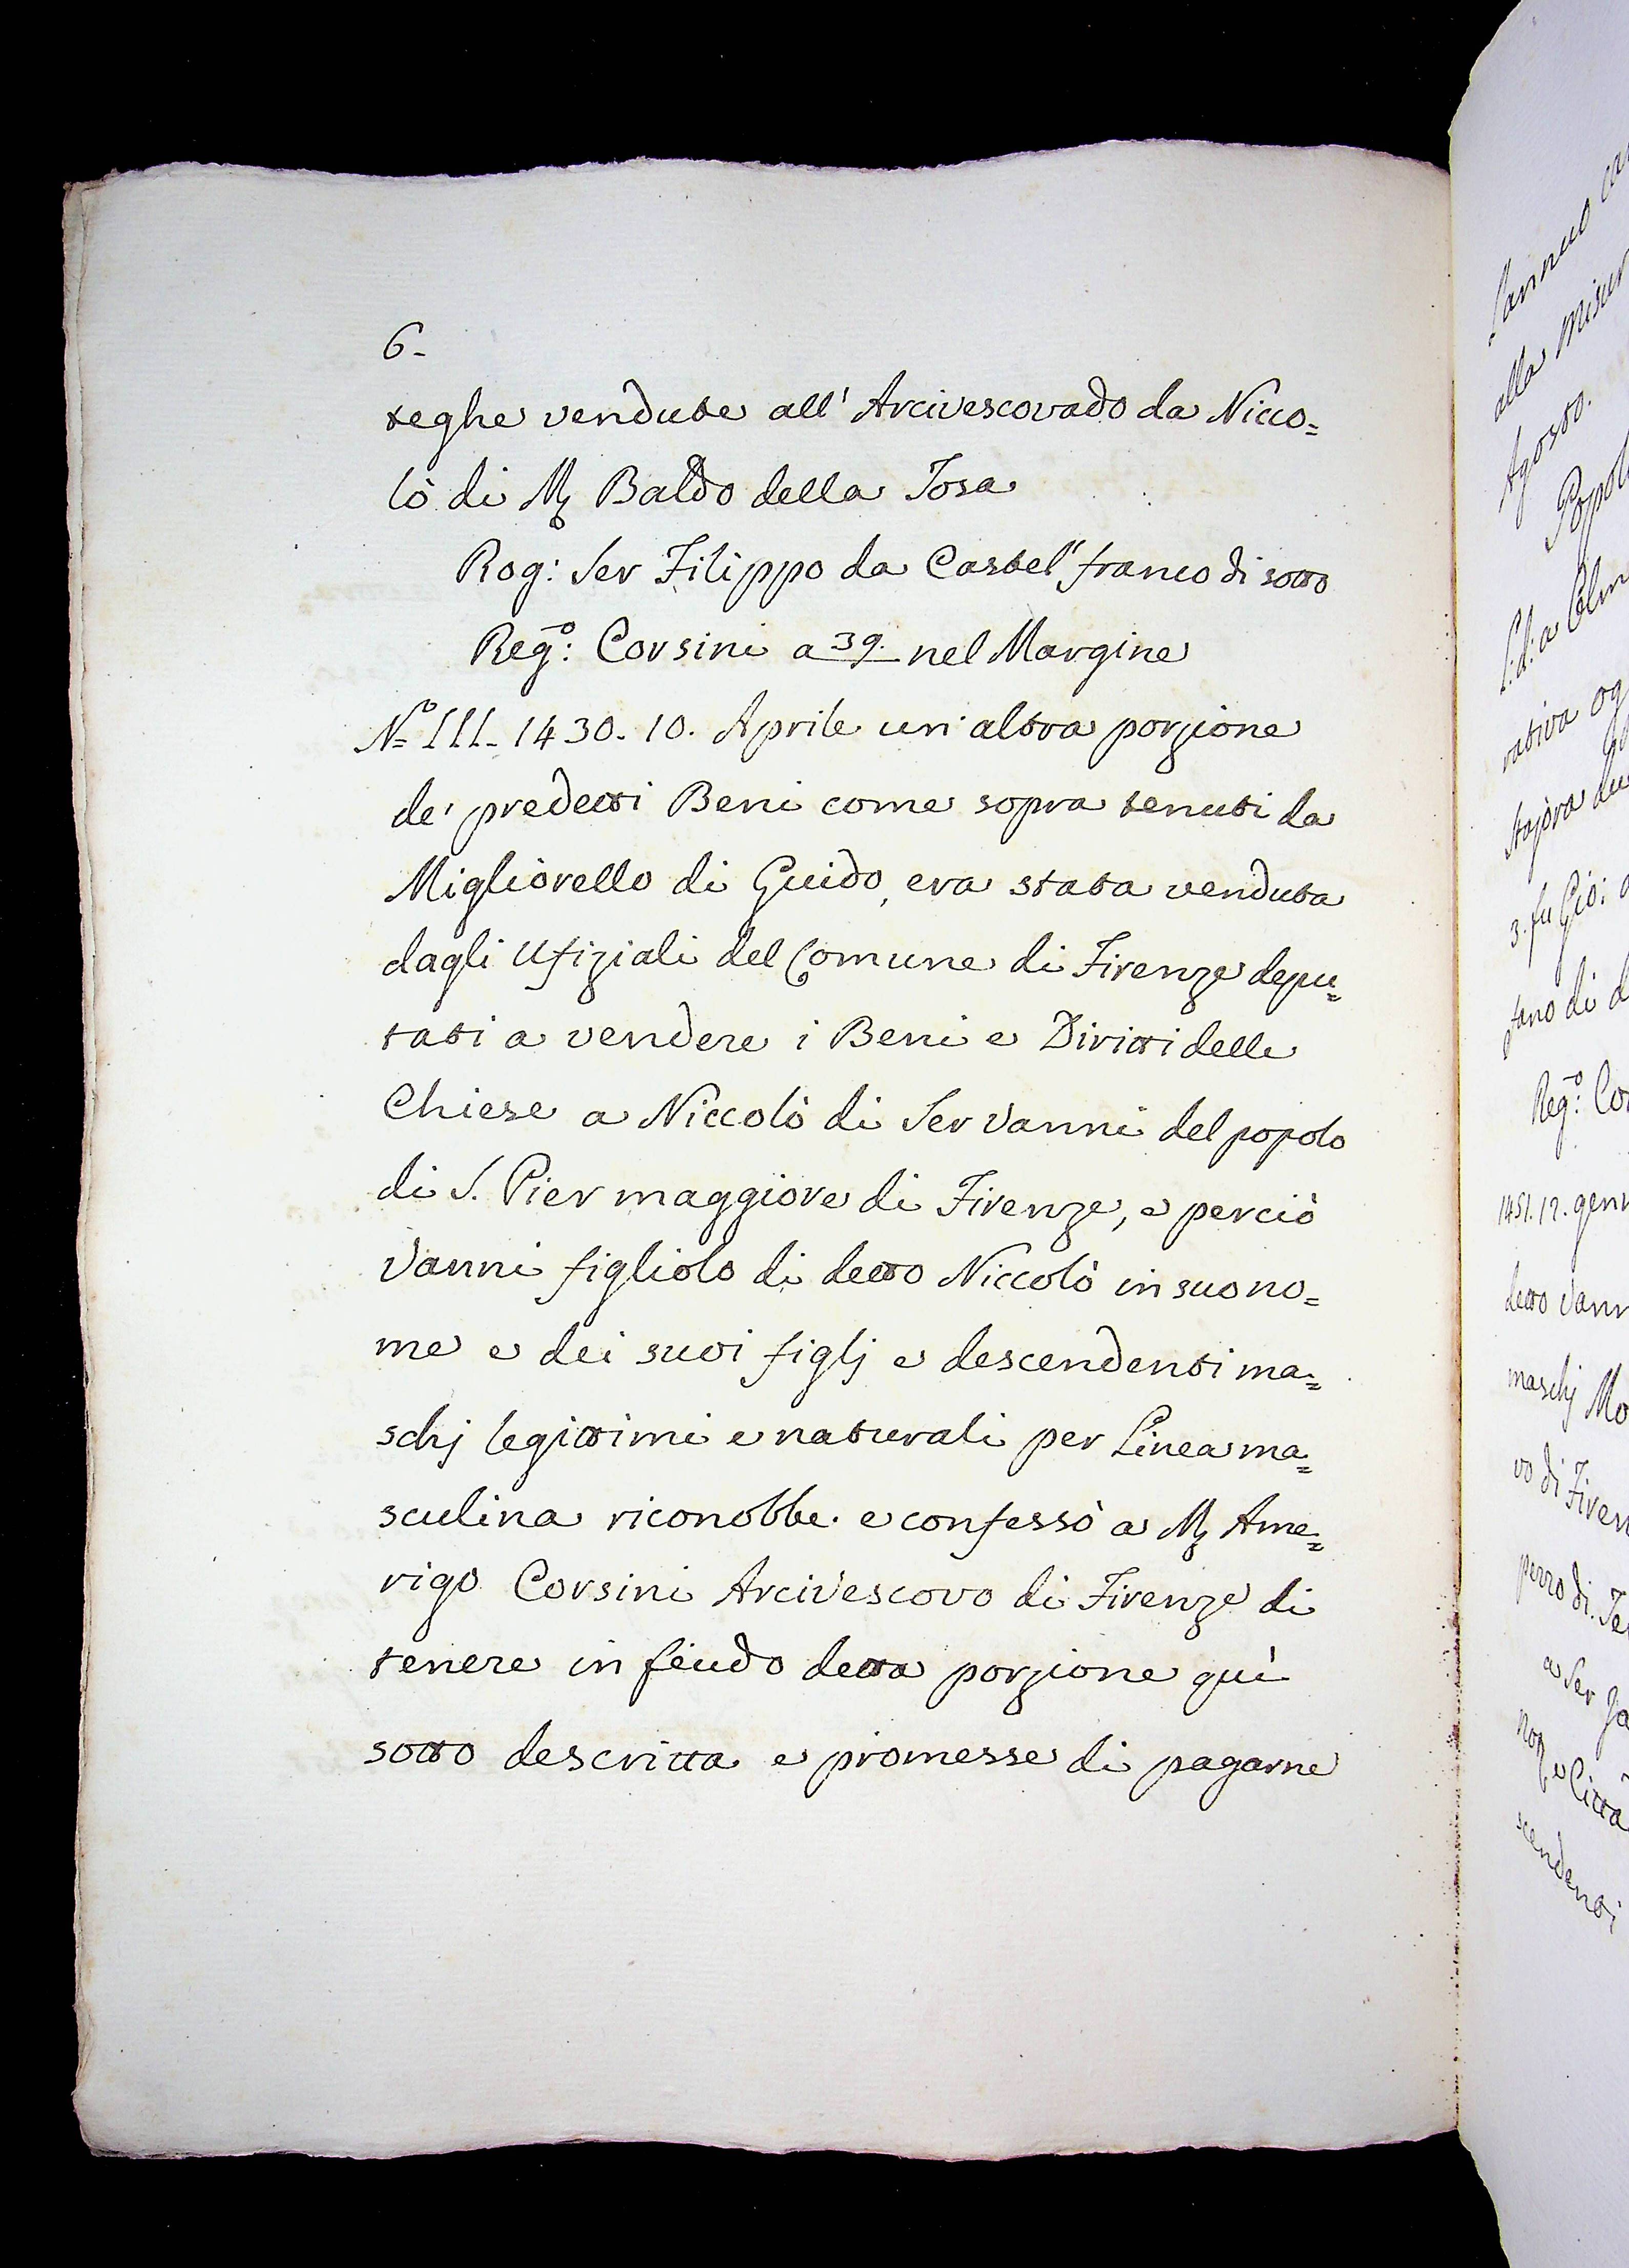 6.
teghe vendute all' Arcivescovado da Nicco=
lò di M. Baldo della Tosa
Rog: Ser Filippo da Castel'franco di sotto
Reg.o: Corsini a 39. nel Margine
N.o III. 1430. 10. Aprile un'altra porzione
de' predetti Beni come sopra tenuti da
Migliorello di Guido, era stata venduta
dagli Ufiziali del Comune di Firenze depu=
tati a vendere i Beni e Diritti delle
Chiese a Niccolò di Ser Vanni del popolo
di S. Pier maggiore di Firenze, e perciò
Vanni figliolo di detto Niccolò in suo no=
me e dei suoi figlj e descendenti ma=
schj legittimi e naturali per Linea ma=
sculina riconobbe e confessò a M. Ame=
rigo Corsini Arcivescovo di Firenze di
tenere in feudo detta porzione quì
sotto descritta e promesse di pagarne
alla misur
Agosto.
Popol
rativa og
stajora du
3. fu Gio:
tano di d
Reg.o: Co
1451. 12. genn
detto Vann
maschj Mo
vo di Firen
a Ser
Città
scendenti